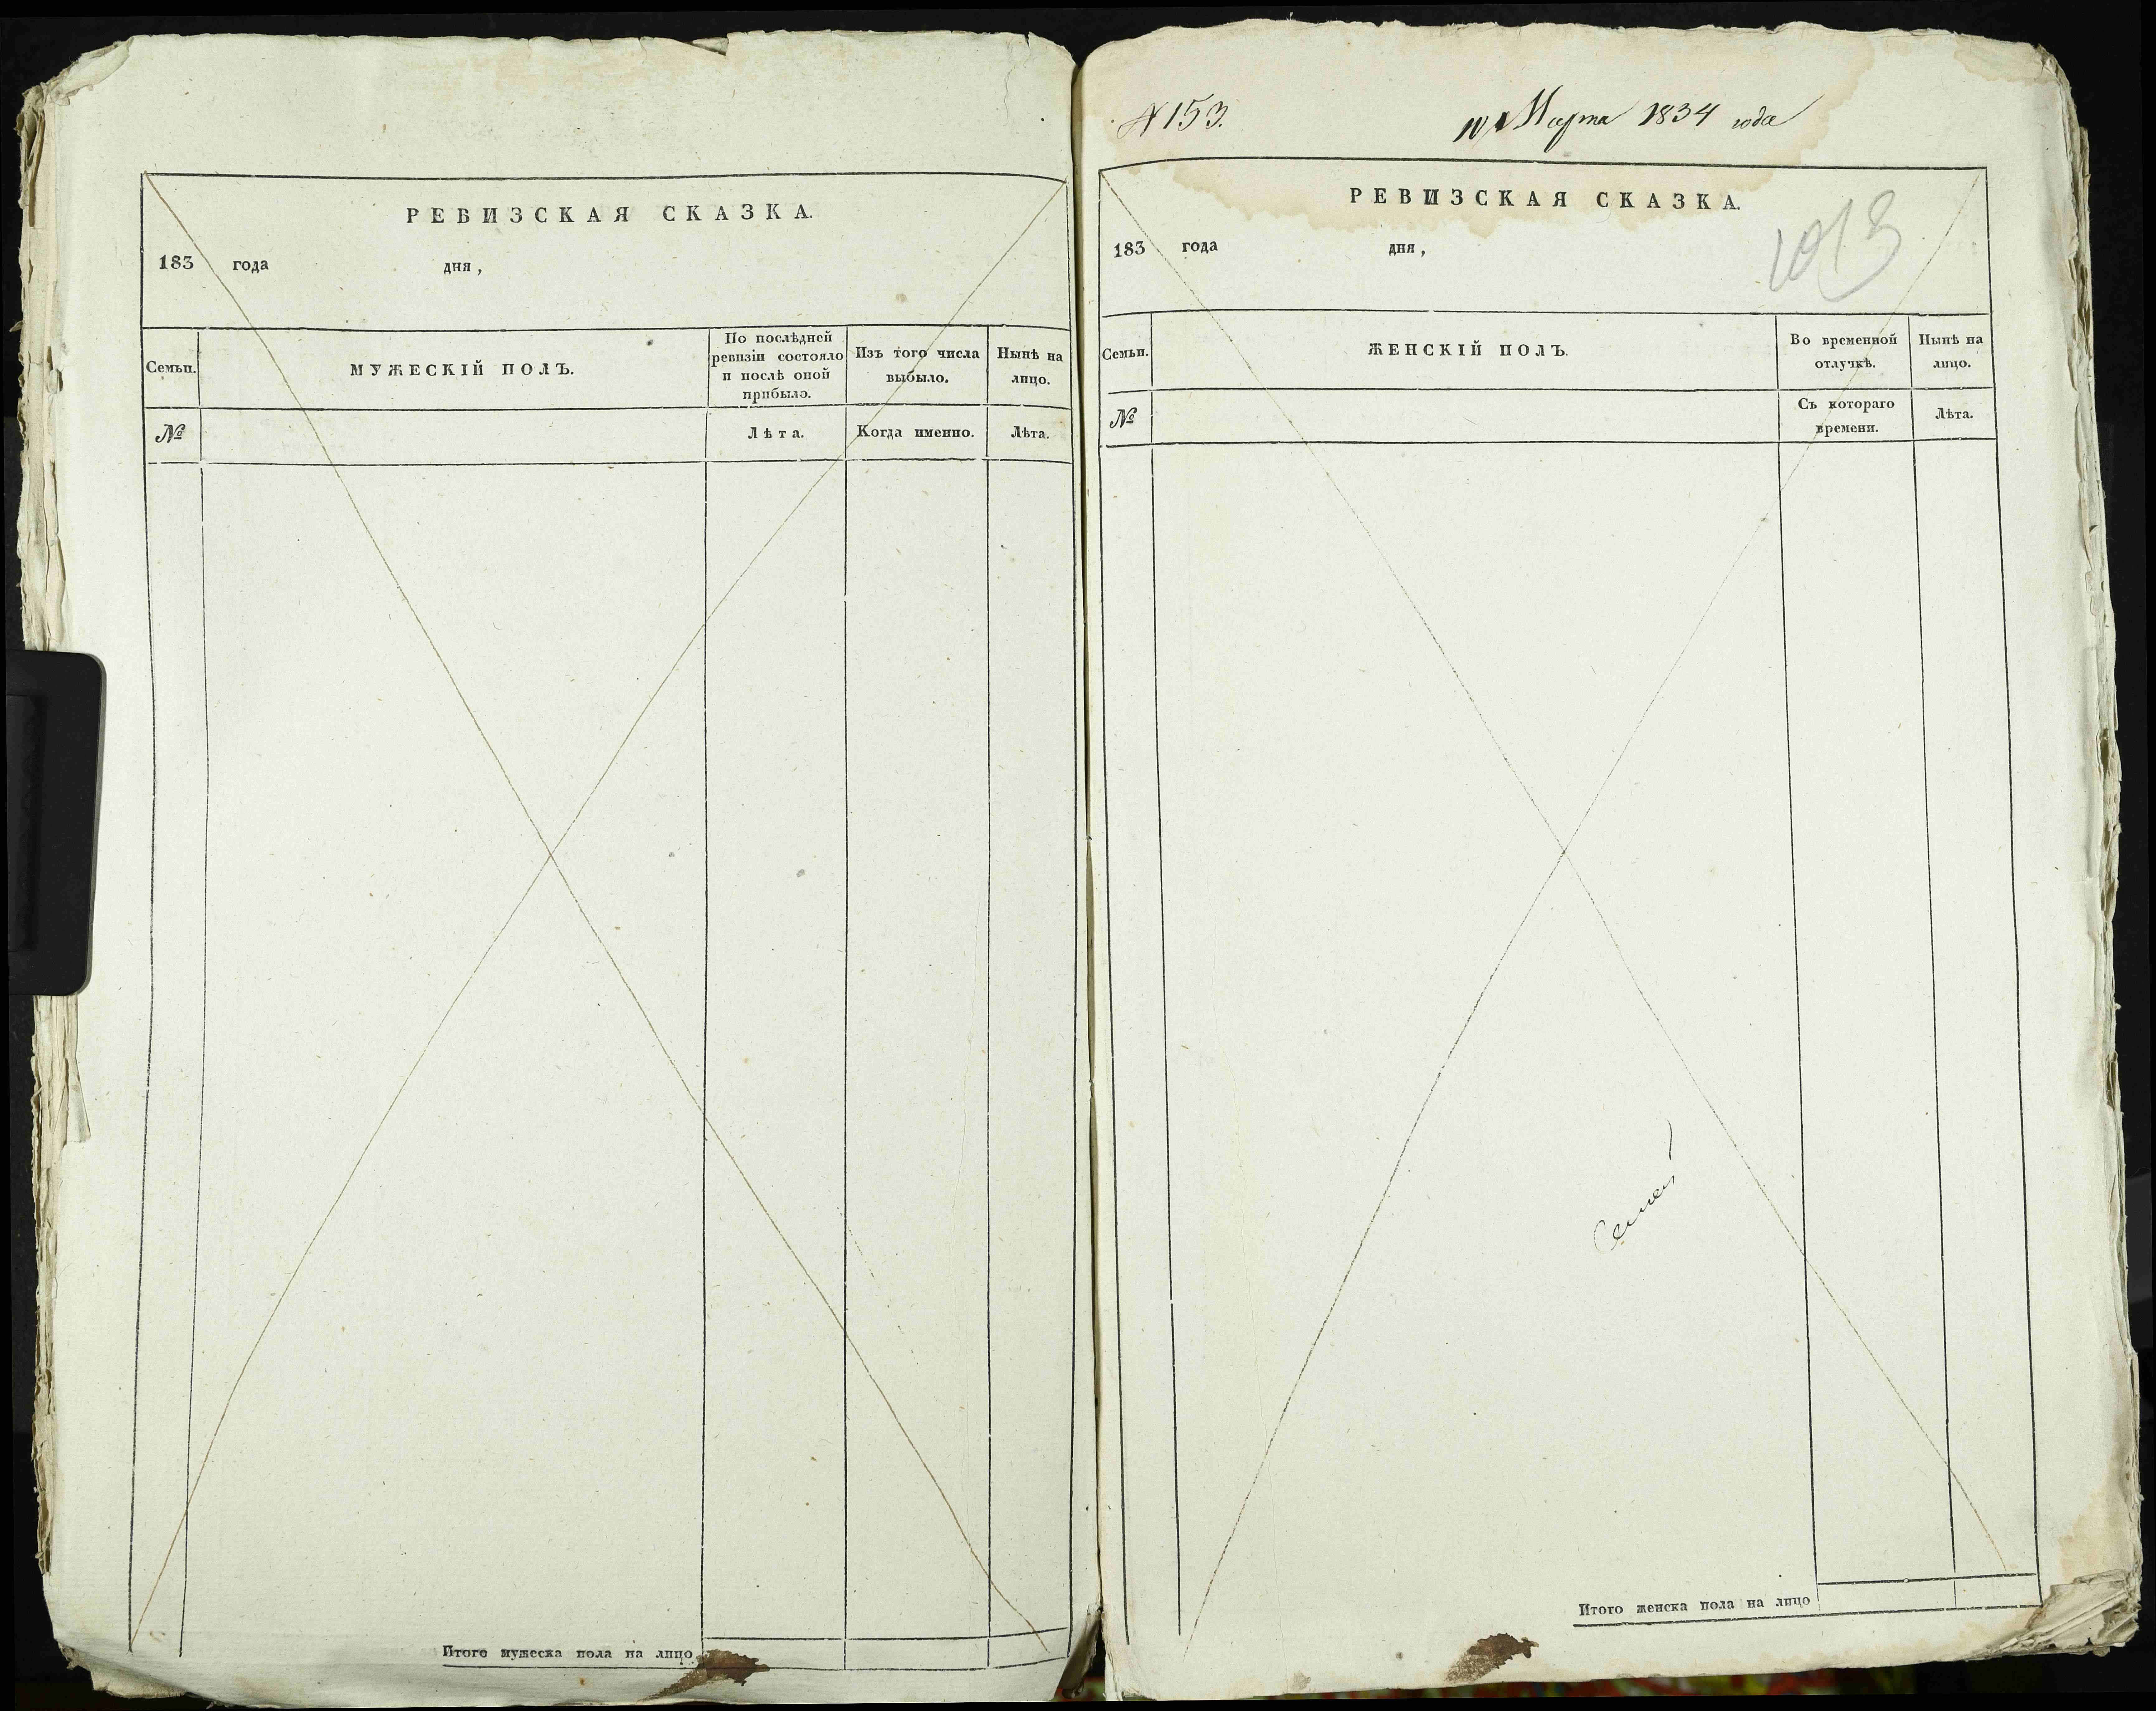 РЕВИЗСКАЯ СКАЗКА.
183 года дня,
Семьи.
МУЖЕСКІЙ ПОЛЪ.
По послѣдней
ревизіи состояло
и послѣ оной
прибыло.
Изъ того числа
выбыло.
Нынѣ на
лицо.
№
Лѣта.
Когда именно.
Лѣта.
Итого мужеска пола на лицо
№ 153.
10 Марта 1834 года
РЕВИЗСКАЯ СКАЗКА.
1013
183 года дня,
Семьи.
ЖЕНСКІЙ ПОЛЪ.
Во временной
отлучкѣ.
Нынѣ на
лицо.
№
Съ котораго
времени.
Лѣта.
Итого женска пола на лицо